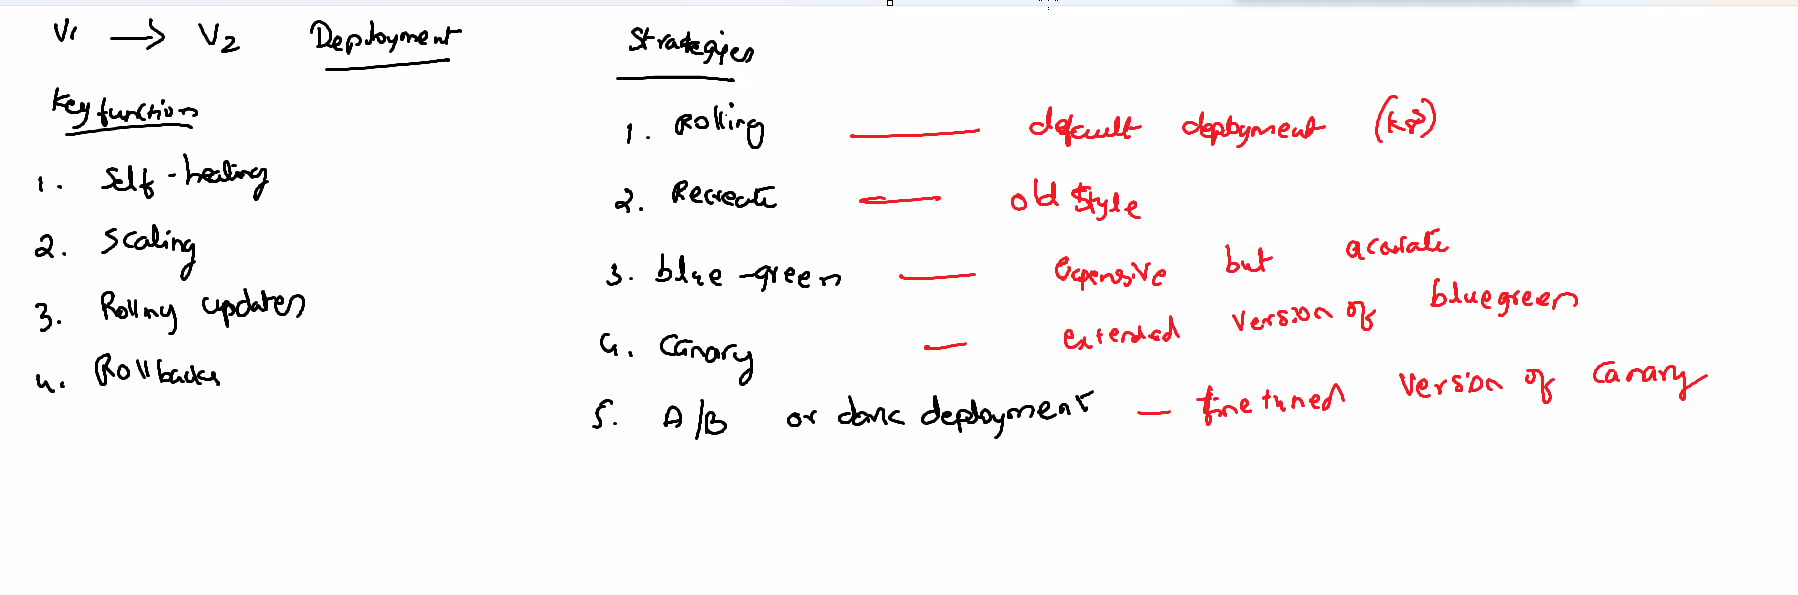 V1 → V2 Deployment
Key function
1. Self-healing
2. Scaling
3. Rolling updates
4. Rollbacks
Strategies
1. Rolling — default deployment (k8s)
2. Recreate — old style
3. blue-green — expensive but acurate
4. Canary — extended version of bluegreen
5. A/B or dark deployment — finetuned version of canary